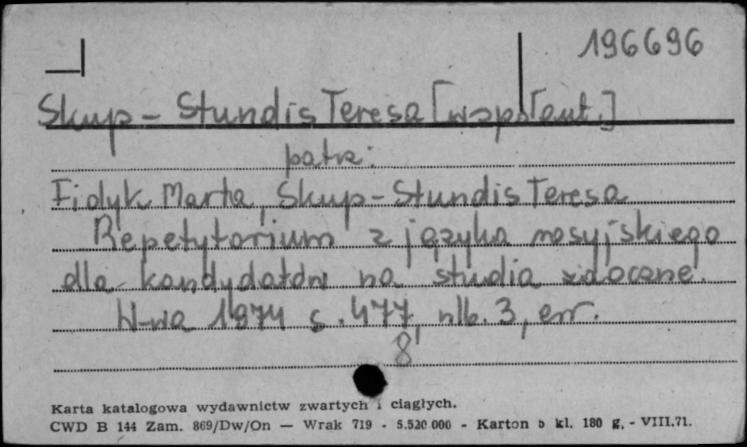 196696
Skup-Stundis Teresa [współaut.]
patrz:
Fidyk Marta, Skup-Stundis Teresa
Repetytorium z języka rosyjskiego
dla kandydatów na studia zaoczne.
W-wa 1974 s. 477, nlb. 3, err.
8°
Karta katalogowa wydawnictw zwartych i ciągłych.
CWD B 144 Zam. 869/Dw/On — Wrak 719 - 5.520.000 - Karton b kl. 180 g. - VIII.71.